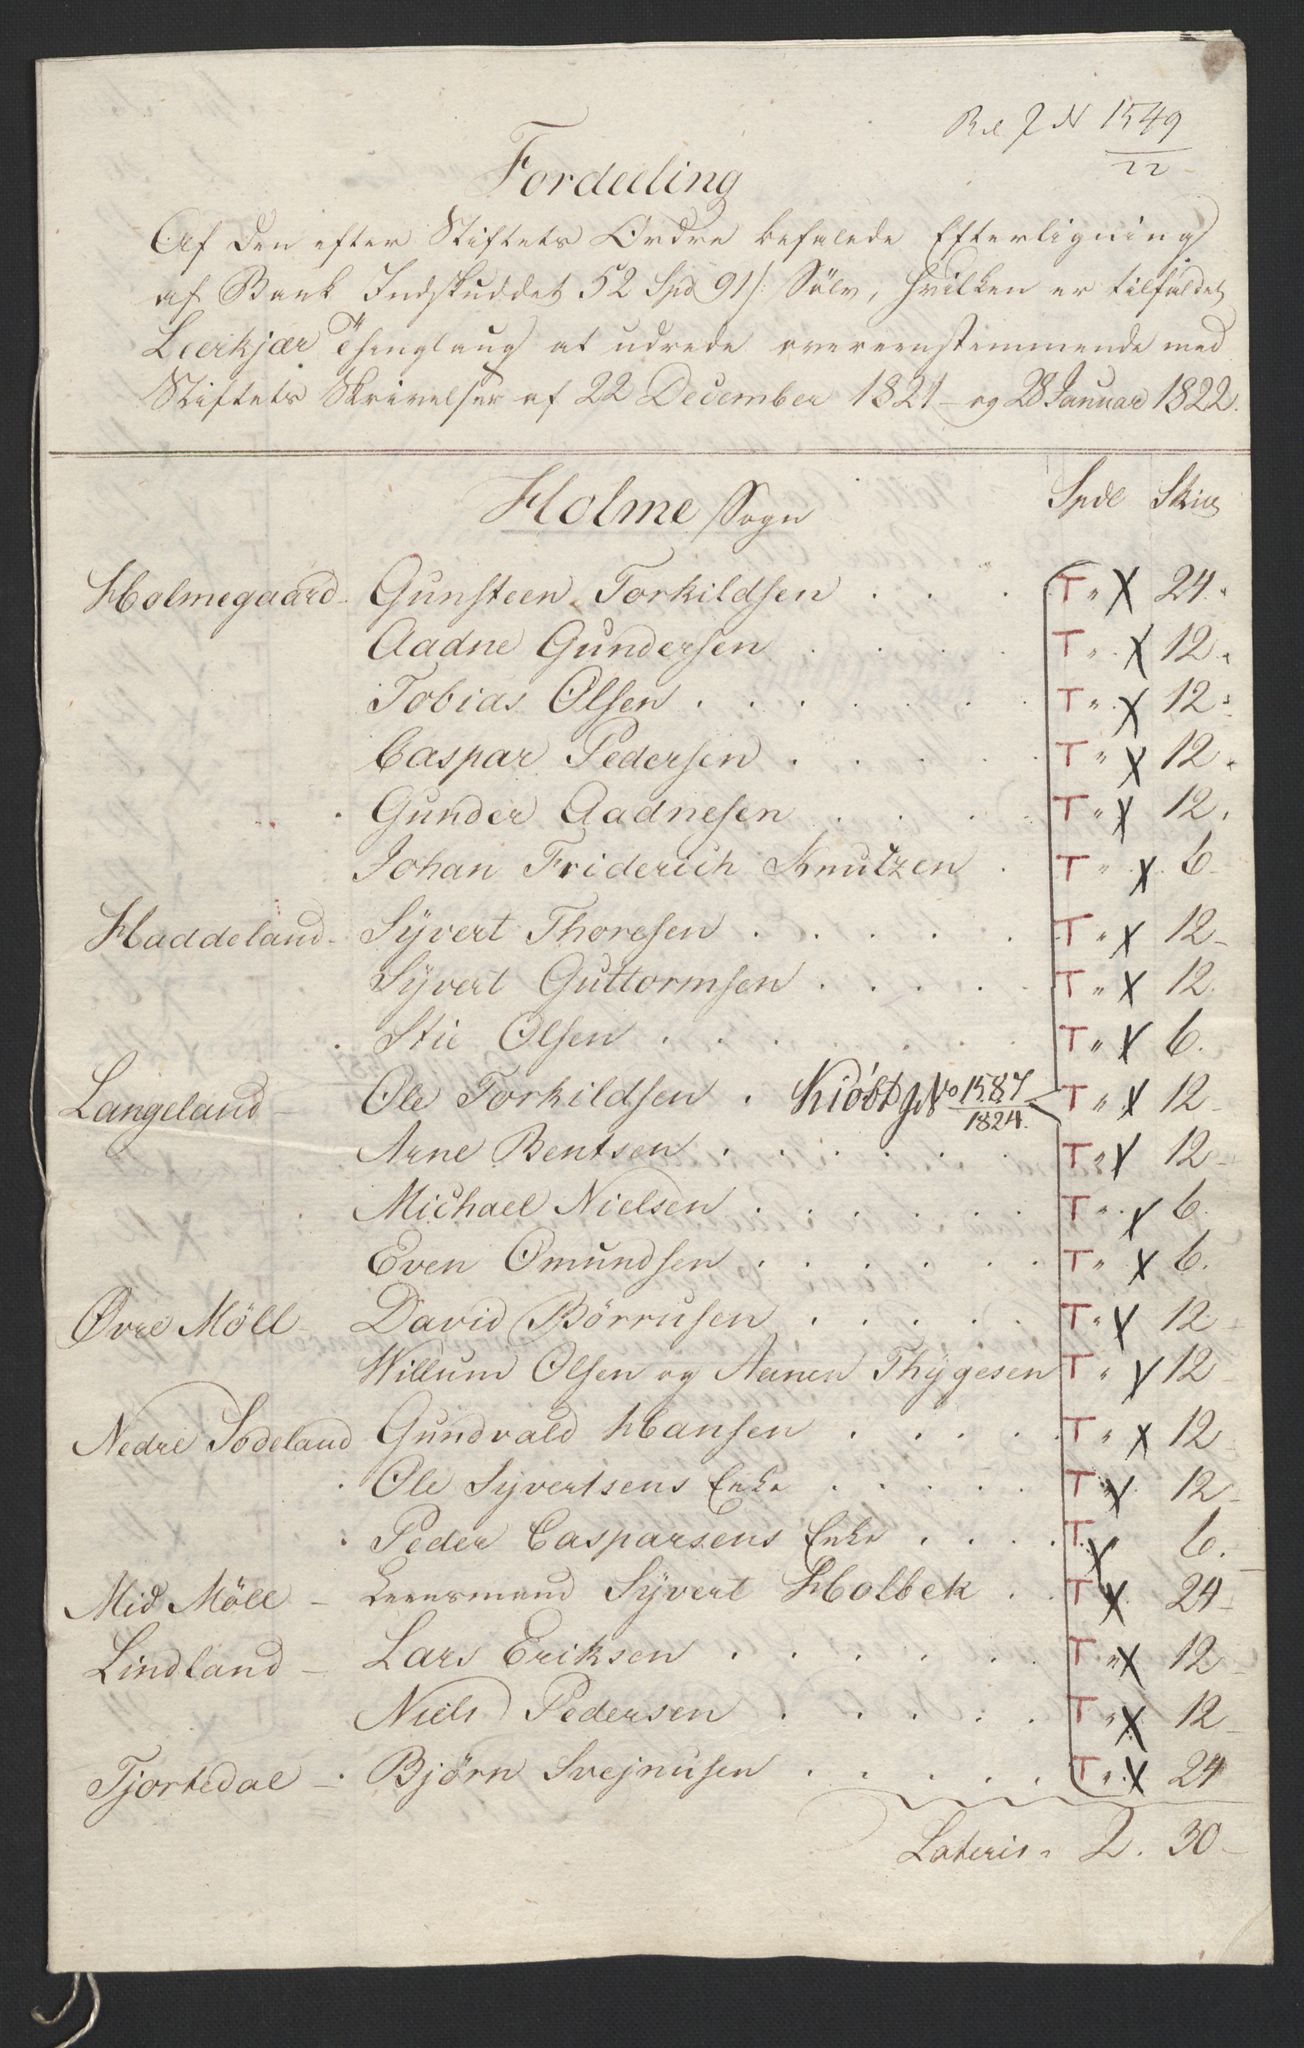 Rel J N 1549/22
Fordeeling
Af den efter Stiftets Ordre befalede Efterligning
af Bank Indskuddet 52 Spd 91 s Sölv, hvilken er tilfaldet
Leerkjær Thinglaug at udrede overeenstemmende med
Stiftets Skrivelser af 22 December 1821 - og 28 Januar 1822.
Holme Sogn Spdl Skill
Holmegaard - Gunsteen Torkildsen . . . T " X 24.
Aadne Gundersen . . . . T " X 12.
Tobias Olsen . . . . . . . T " X 12.
Caspar Pedersen . . . . . T " X 12.
Gunder Aadnesen . . . . T " X 12.
Johan Friderich Knutzen . T " X 6
Haddeland - Syvert Thoresen . . . . . T " X 12 -
Syvert Guttormsen . . . . . T " X 12.
Stie Olsen . . . . . . . T " X 6.
Langeland - Ole Torkildsen . Kiöbt J No 1587/1824. T " X 12 -
Arne Bentsen . . . . . . T " X 12 -
Michael Nielsen . . . . . . T " X 6.
Even Omundsen . . . . . . T " X 6.
Øvre Möll - David Börrusen . . . . . T " X 12 -
Willum Olsen og Aanen Thygesen T " X 12
Nedre Sodeland Gundvald Hansen . . . . . T " X 12
Ole Syvertsens Enke . . . . . T " X 12 -
Peder Casparsens Enke . . . . T " X 6.
Mid Möll - Leensmand Syvert Holbek . . T " X 24 -
Lindland - Lars Eriksen . . . . . . T " X 12 -
Niels Pedersen . . . . . T " X 12 -
Tjortedal - Björn Svejnusen . . . . . T " X 24
Lateris " 2. 30 -